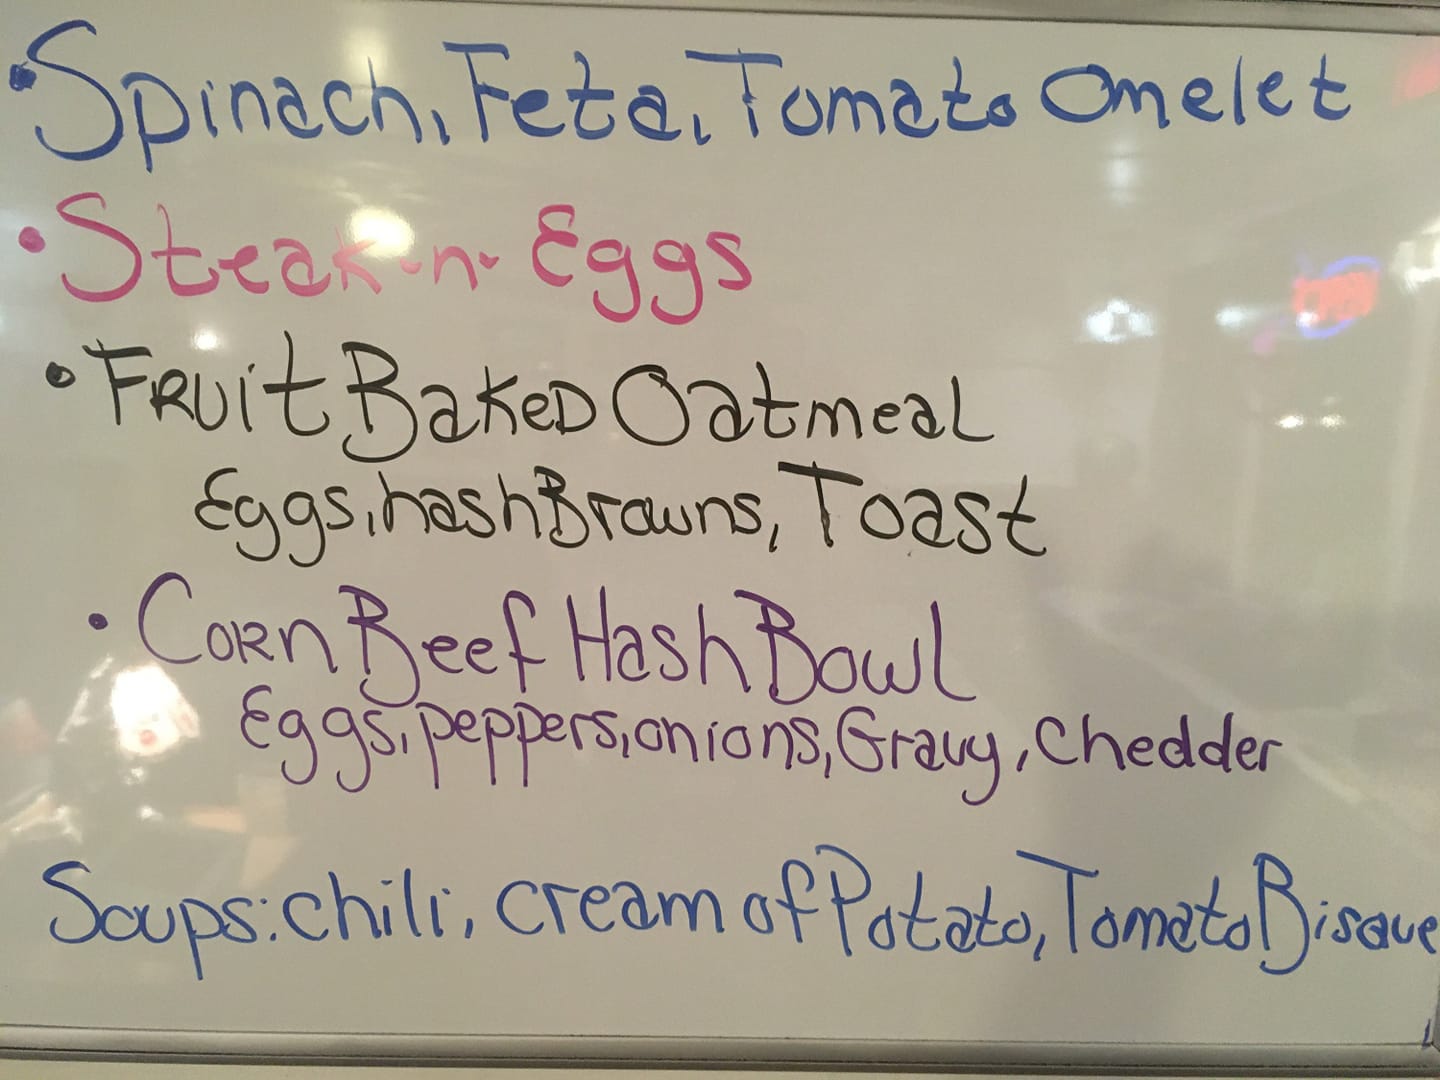 • Spinach, Feta, Tomato Omelet
• Steak -n- Eggs
• Fruit Baked Oatmeal
Eggs, hash Browns, Toast
• Corn Beef Hash Bowl
Eggs, peppers, onions, Gravy, Chedder
Soups: chili, cream of Potato, Tomato Bisque